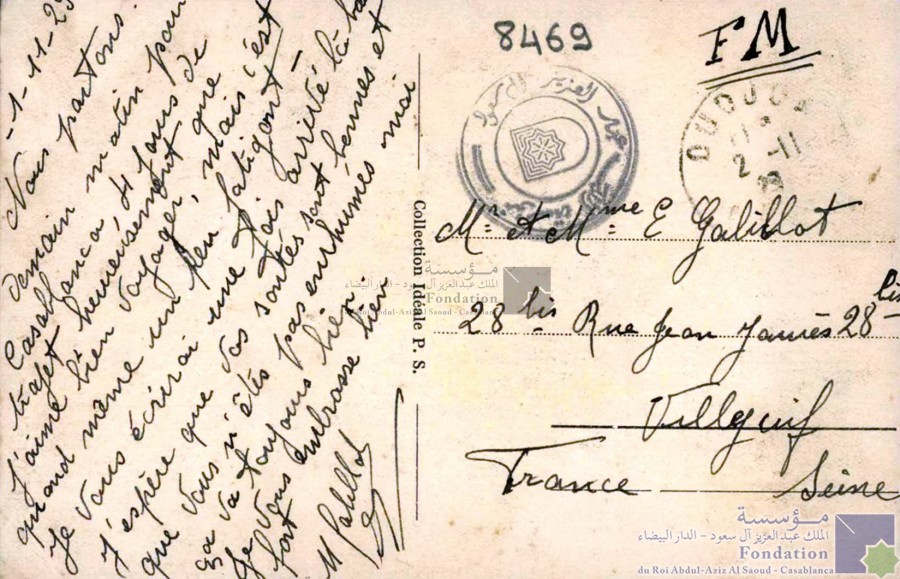 -1-11-29
Nous partons.
Demain matin pour
Casablanca, 4 jours de
trajet heureusement que
J'aime bien voyager, mais c'est
quand meme un peu fatigant-
Je vous écrirai une fois arrivé là bas
J'espère que vos santés sont bonnes et
que vous n'êtes pas enrhumés moi
ça va toujours bien
Je vous embrasse bien
fort
8469
FM
OUDJDA
2-11
Mr et Mme E Galillot
28 bis Rue Jean Jaurès 28 bis
Villejuif
France Seine
Collection Idéale P. S.
مؤسسة
الملك عبد العزيز آل سعود - الدار البيضاء
Fondation
du Roi Abdul-Aziz Al Saoud - Casablanca
مؤسسة
الملك عبد العزيز آل سعود - الدار البيضاء
Fondation
du Roi Abdul-Aziz Al Saoud - Casablanca